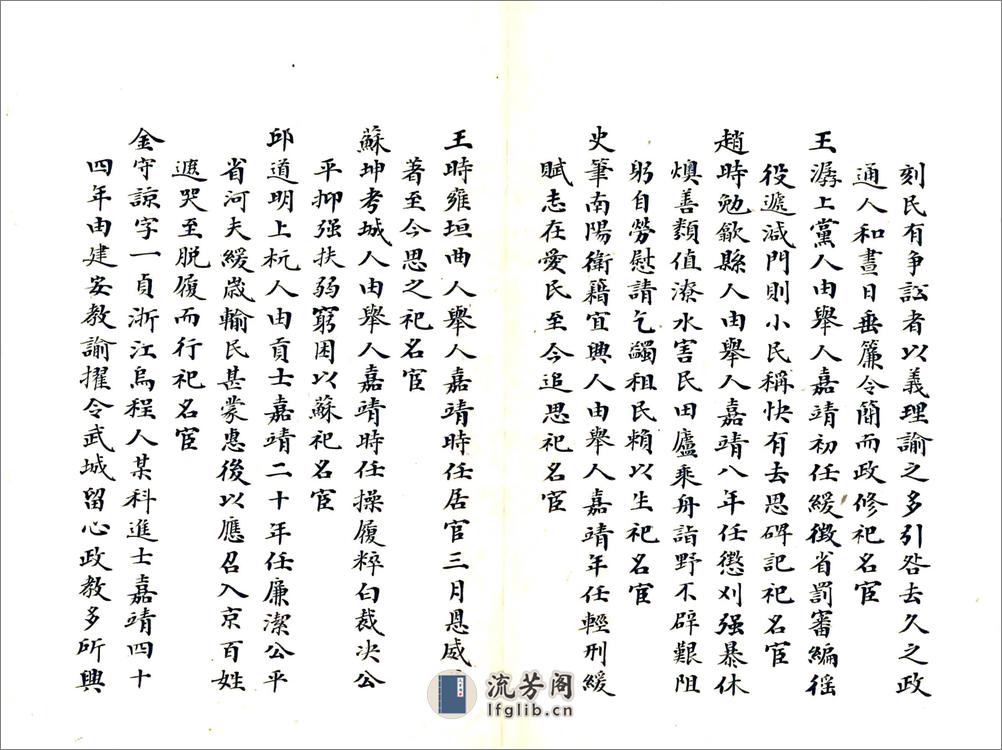 刻民有争訟者以義理諭之多引咎去久之政
通人和晝日垂簾令簡而政修祀名宦
王潺上黨人由舉人嘉靖初任緩徵省罰審編徭
役遞減門則小民稱快有去思碑記祀名宦
趙時勉歙縣人由舉人嘉靖八年任懲刈强暴休
燠善類值潦水害民田廬乘舟詣野不辟艱阻
躬自勞慰請乞蠲租民頼以生祀名宦
史筆南陽衛籍宜興人由舉人嘉靖年任輕刑緩
賦志在愛民至今追思祀名宦
王時雍垣曲人舉人嘉靖時任居官三月恩威
著至今思之祀名宦
蘇坤考城人由舉人嘉靖時任操履粹白裁决公
平抑强扶弱窮困以蘇祀名宦
邱道明上杭人由貢士嘉靖二十年任廉潔公平
省河夫緩歲輸民甚蒙惠後以應召入京百姓
遮哭至脱履而行祀名宦
金守諒字一貞浙江烏程人某科進士嘉靖四十
四年由建安教諭擢令武城留心政教多所興
流芳阁
lfglib.cn